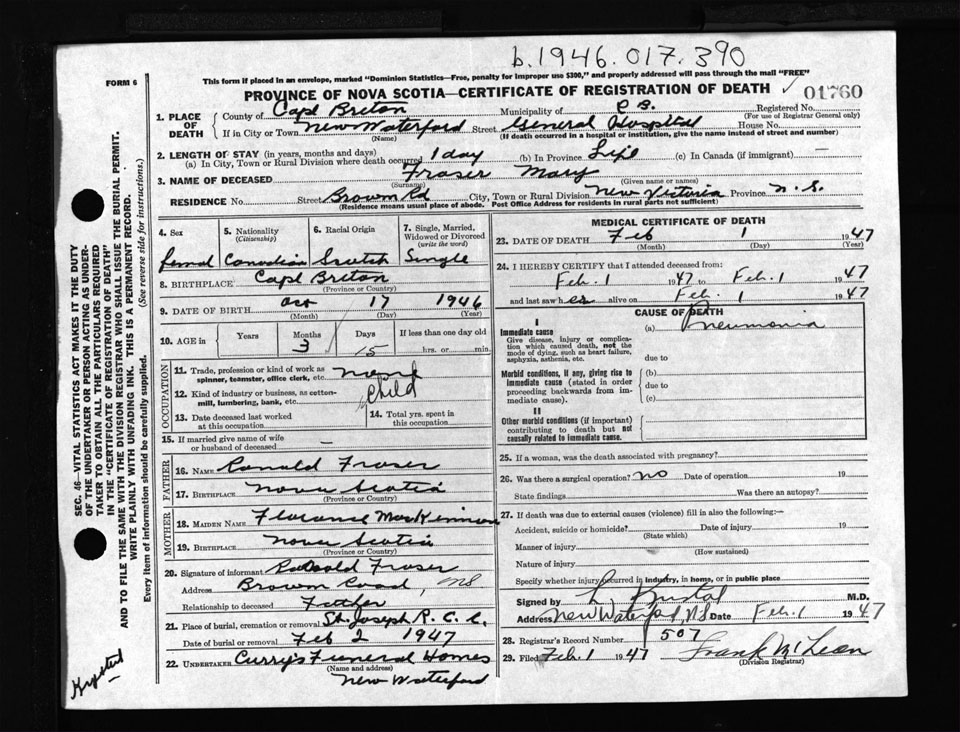 b.1946.017.390
FORM 6
This form if placed in an envelope, marked "Dominion Statistics—Free, penalty for improper use $300," and properly addressed will pass through the mail "FREE"
PROVINCE OF NOVA SCOTIA—CERTIFICATE OF REGISTRATION OF DEATH ✓ 01760
1. PLACE OF DEATH { County of Cape Breton Municipality of C B. Registered No.
(For use of Registrar General only)
If in City or Town New Waterford Street General Hospital House No.
(Name) (If death occurred in a hospital or institution, give the name instead of street and number)
2. LENGTH OF STAY (in years, months and days)
(a) In City, Town or Rural Division where death occurred 1 day (b) In Province Life (c) In Canada (if immigrant) —
3. NAME OF DECEASED Fraser Mary
(Surname) (Given name or names)
RESIDENCE No. Street Brown Rd City, Town or Rural Division New Victoria Province N. S.
(Residence means usual place of abode. Post Office Address for residents in rural parts not sufficient)
4. Sex
5. Nationality (Citizenship)
6. Racial Origin
7. Single, Married, Widowed or Divorced (write the word)
Canadian Scotch Single
8. BIRTHPLACE Cape Breton
(Province or Country)
9. DATE OF BIRTH Oct 17 1946
(Month) (Day) (Year)
10. AGE in Years Months Days If less than one day old
3 15 hrs. or min.
OCCUPATION
11. Trade, profession or kind of work as spinner, teamster, office clerk, etc.
12. Kind of industry or business, as cotton-mill, lumbering, bank, etc. Child
13. Date deceased last worked at this occupation
14. Total yrs. spent in this occupation
15. If married give name of wife or husband of deceased —
FATHER
16. NAME Ronald Fraser
17. BIRTHPLACE Nova Scotia
(Province or Country)
MOTHER
18. MAIDEN NAME Florance MacKinnon
19. BIRTHPLACE Nova Scotia
(Province or Country)
20. Signature of informant Ronald Fraser
Address Brown Road, NS
Relationship to deceased Father
21. Place of burial, cremation or removal St. Joseph R. C. C.
Date of burial or removal Feb 2 1947
22. UNDERTAKER Curry's Funeral Homes
(Name and address)
New Waterford
MEDICAL CERTIFICATE OF DEATH
23. DATE OF DEATH Feb 1 1947
(Month) (Day) (Year)
24. I HEREBY CERTIFY that I attended deceased from:
Feb. 1 1947 to Feb. 1 1947
and last saw her alive on Feb. 1 1947
CAUSE OF DEATH
I
Immediate cause (a) Pneumonia
Give disease, injury or complication which caused death, not the mode of dying, such as heart failure, asphyxia, asthenia, etc.
due to
Morbid conditions, if any, giving rise to immediate cause (stated in order proceeding backwards from immediate cause).
(b)
due to
(c)
II
Other morbid conditions (if important) contributing to death but not causally related to immediate cause.
25. If a woman, was the death associated with pregnancy?
26. Was there a surgical operation? no Date of operation 19
State findings Was there an autopsy?
27. If death was due to external causes (violence) fill in also the following:—
Accident, suicide or homicide? Date of injury 19
(State which)
Manner of injury
(How sustained)
Nature of injury
Specify whether injury occurred in industry, in home, or in public place
Signed by M.D.
Address New Waterford, N.S. Date Feb. 1 1947
28. Registrar's Record Number 507
29. Filed Feb. 1 1947 Frank McLean
(Division Registrar)
SEC. 46—VITAL STATISTICS ACT MAKES IT THE DUTY
OF THE UNDERTAKER OR PERSON ACTING AS UNDER-
TAKER TO OBTAIN ALL THE PARTICULARS REQUIRED
IN THE "CERTIFICATE OF REGISTRATION OF DEATH"
AND TO FILE THE SAME WITH THE DIVISION REGISTRAR WHO SHALL ISSUE THE BURIAL PERMIT.
WRITE PLAINLY WITH UNFADING INK. THIS IS A PERMANENT RECORD.
Every item of information should be carefully supplied. (See reverse side for instructions.)